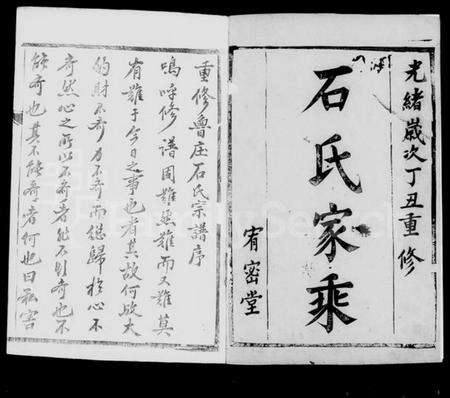 光緒歲次丁丑重修
石氏家乘
宥密堂
重修魯庄石氏宗譜序
嗚呼修譜固難矣難而又難莫
有難于今日之事也者其故何歟大
約財不齊力不齊而總歸於心不
齊然心之所以不齊者能不財齊也不
能齊也其不能齊者何也曰私害